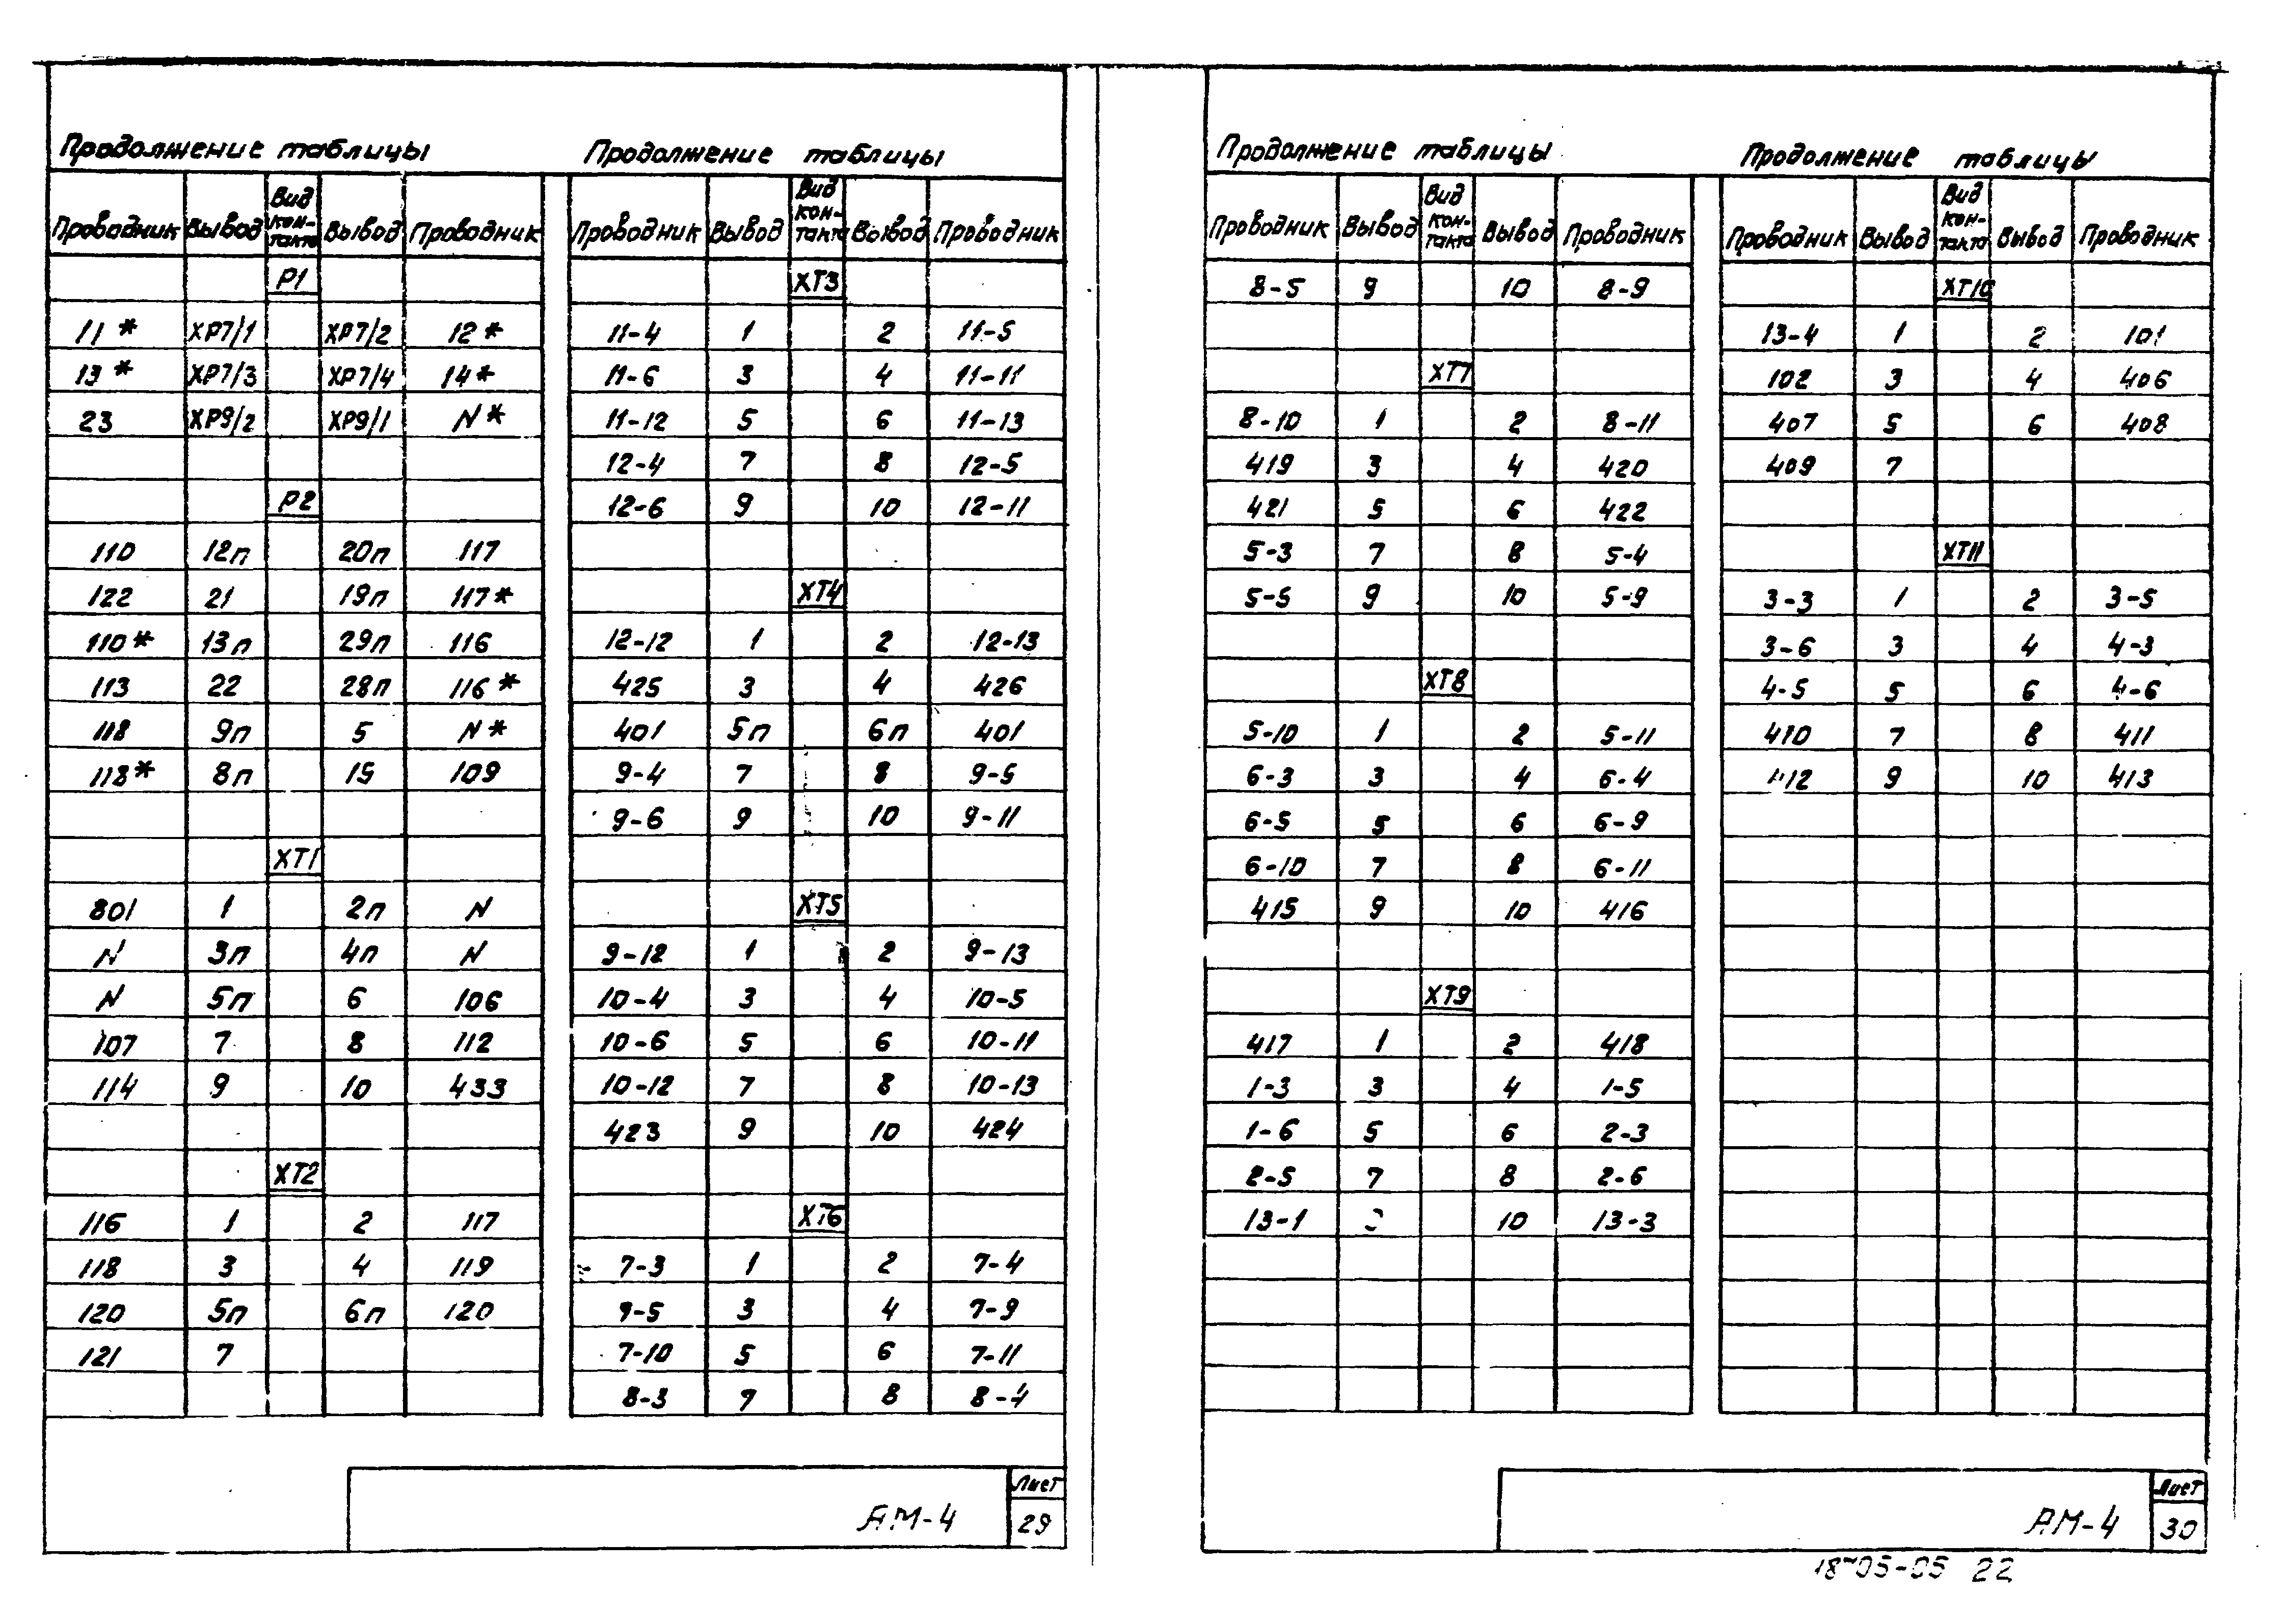 Продолжение таблицы
Проводник Вывод Вид контакта Вывод Проводник
Р1
11* ХР7/1 ХР7/2 12*
13* ХР7/3 ХР7/4 14*
23 ХР9/2 ХР9/1 N*
Р2
110 12п 20п 117
122 21 19п 117*
110* 13п 29п 116
113 22 28п 116*
118 9п 5 N*
118* 8п 15 109
ХТ1
801 1 2п N
N 3п 4п N
N 5п 6 106
107 7 8 112
114 9 10 433
ХТ2
116 1 2 117
118 3 4 119
120 5п 6п 120
121 7
Продолжение таблицы
Проводник Вывод Вид контакта Вывод Проводник
ХТ3
11-4 1 2 11-5
11-6 3 4 11-11
11-12 5 6 11-13
12-4 7 8 12-5
12-6 9 10 12-11
ХТ4
12-12 1 2 12-13
425 3 4 426
401 5п 6п 401
9-4 7 8 9-5
9-6 9 10 9-11
ХТ5
9-12 1 2 9-13
10-4 3 4 10-5
10-6 5 6 10-11
10-12 7 8 10-13
423 9 10 424
ХТ6
7-3 1 2 7-4
7-5 3 4 7-9
7-10 5 6 7-11
8-3 7 8 8-4
АМ-4
Лист
29
Продолжение таблицы
Проводник Вывод Вид контакта Вывод Проводник
8-5 9 10 8-9
ХТ7
8-10 1 2 8-11
419 3 4 420
421 5 6 422
5-3 7 8 5-4
5-5 9 10 5-9
ХТ8
5-10 1 2 5-11
6-3 3 4 6-4
6-5 5 6 6-9
6-10 7 8 6-11
415 9 10 416
ХТ9
417 1 2 418
1-3 3 4 1-5
1-6 5 6 2-3
2-5 7 8 2-6
13-1 10 13-3
Продолжение таблицы
Проводник Вывод Вид контакта Вывод Проводник
ХТ10
13-4 1 2 101
102 3 4 406
407 5 6 408
409 7
ХТ11
3-3 1 2 3-5
3-6 3 4 4-3
4-5 5 6 4-6
410 7 8 411
412 9 10 413
АМ-4
Лист
30
22